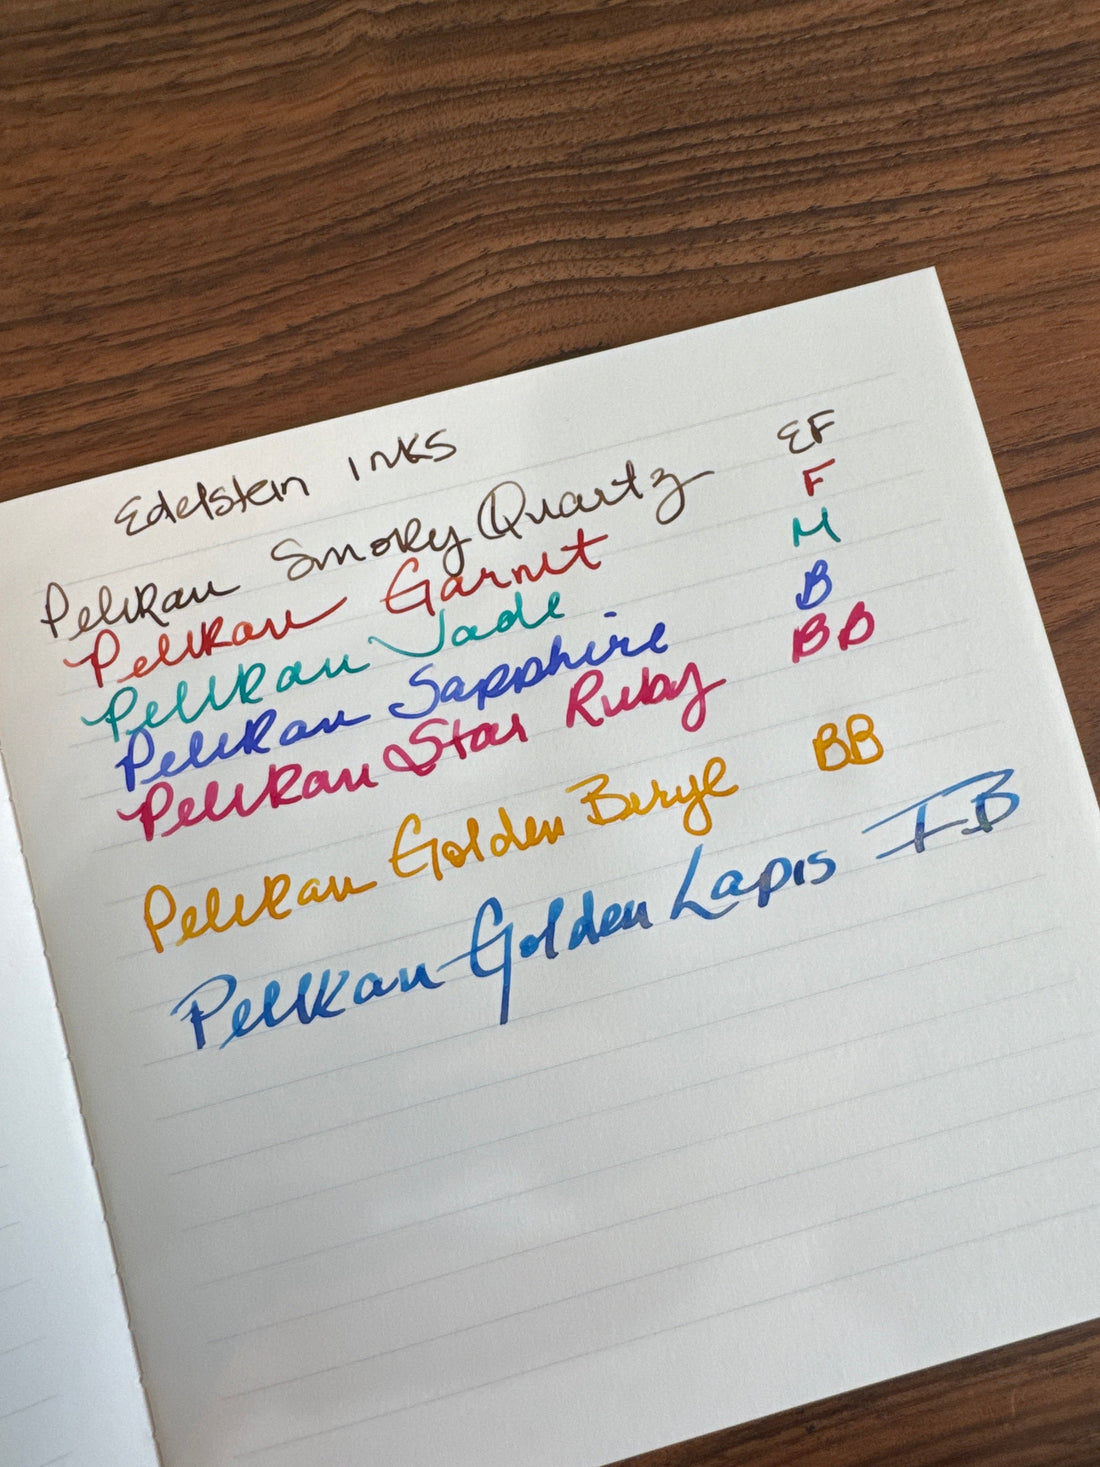 Edelstein INKS
Pelikan Smoky Quartz EF
Pelikan Garnet F
Pelikan Jade M
Pelikan Sapphire B
Pelikan Star Ruby BB
Pelikan Golden Beryl BB
Pelikan Golden Lapis IB